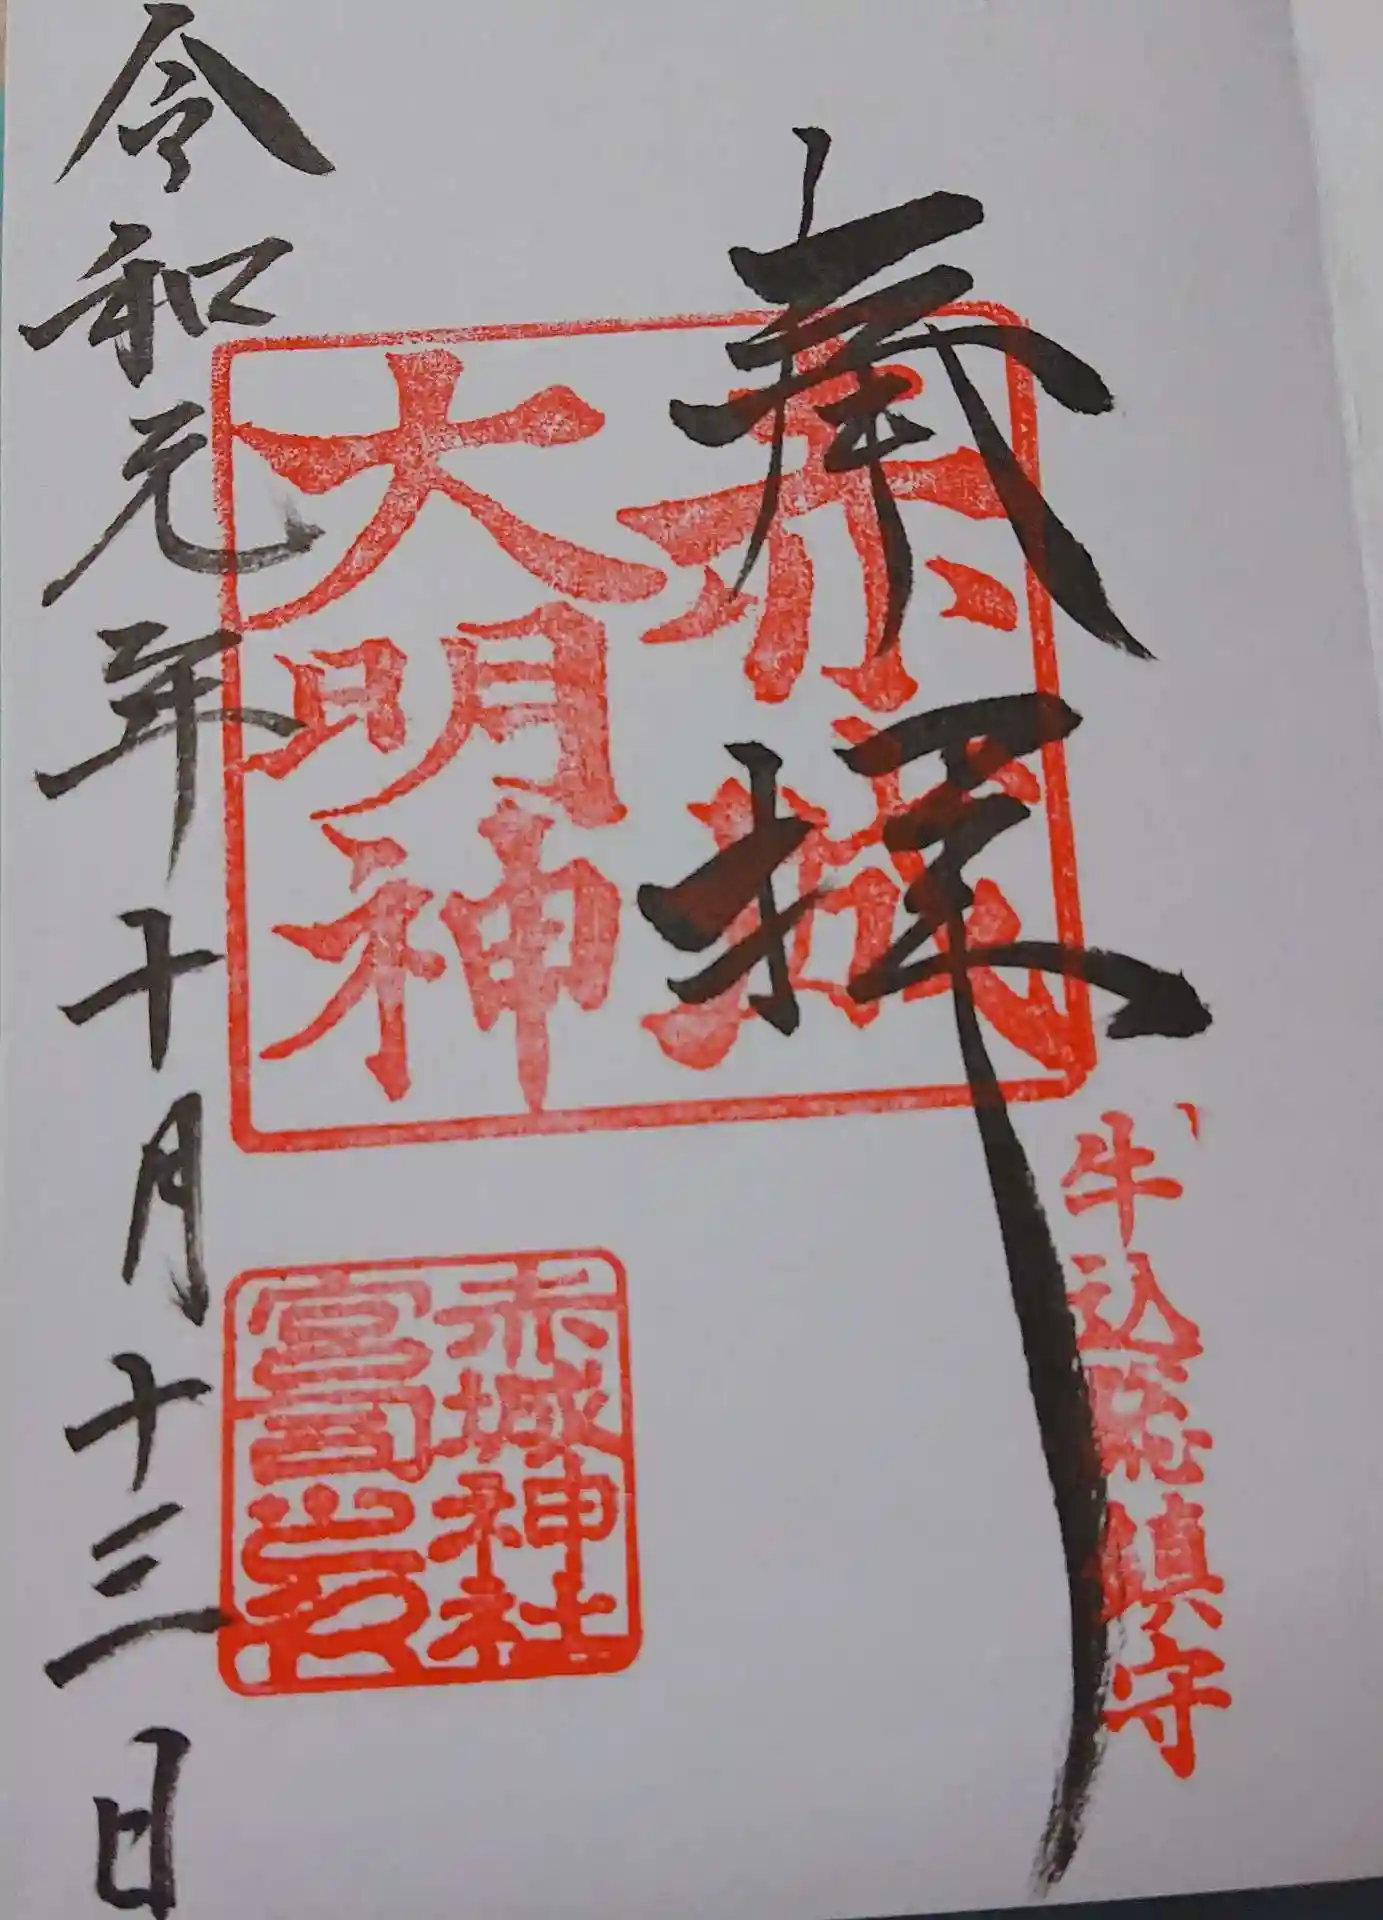 奉拝
牛込総鎮守
赤城
大明神
赤城神社
宮司之印
令和元年十月十三日